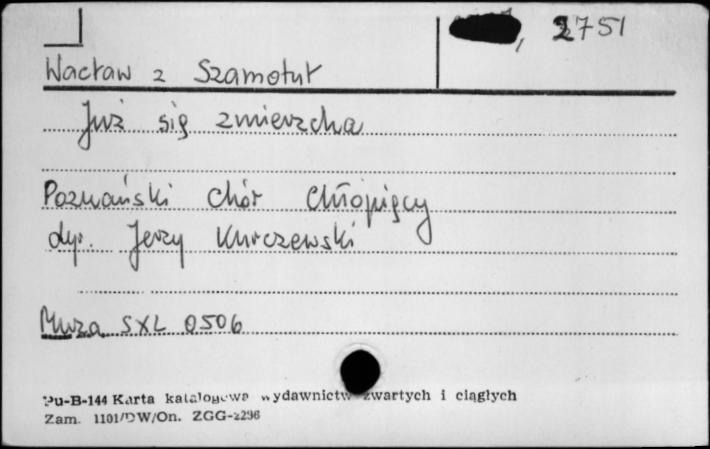 , 2751
Wacław z Szamotuł
Już się zmierzcha
Poznański Chór Chłopięcy
dyr. Jerzy Kurczewski
Muza SXL 0506
Pu-B-144 Karta katalogowa wydawnictw zwartych i ciągłych
Zam. 1101/DW/On. ZGG-2296